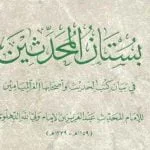 بستان المحدثين
في بيان كتب الحديث وأصحابها الغر الميامين
للإمام المحدث عبد العزيز بن الإمام ولي الله الدهلوي
(١١٥٩ھ - ١٢٣٩ھ)